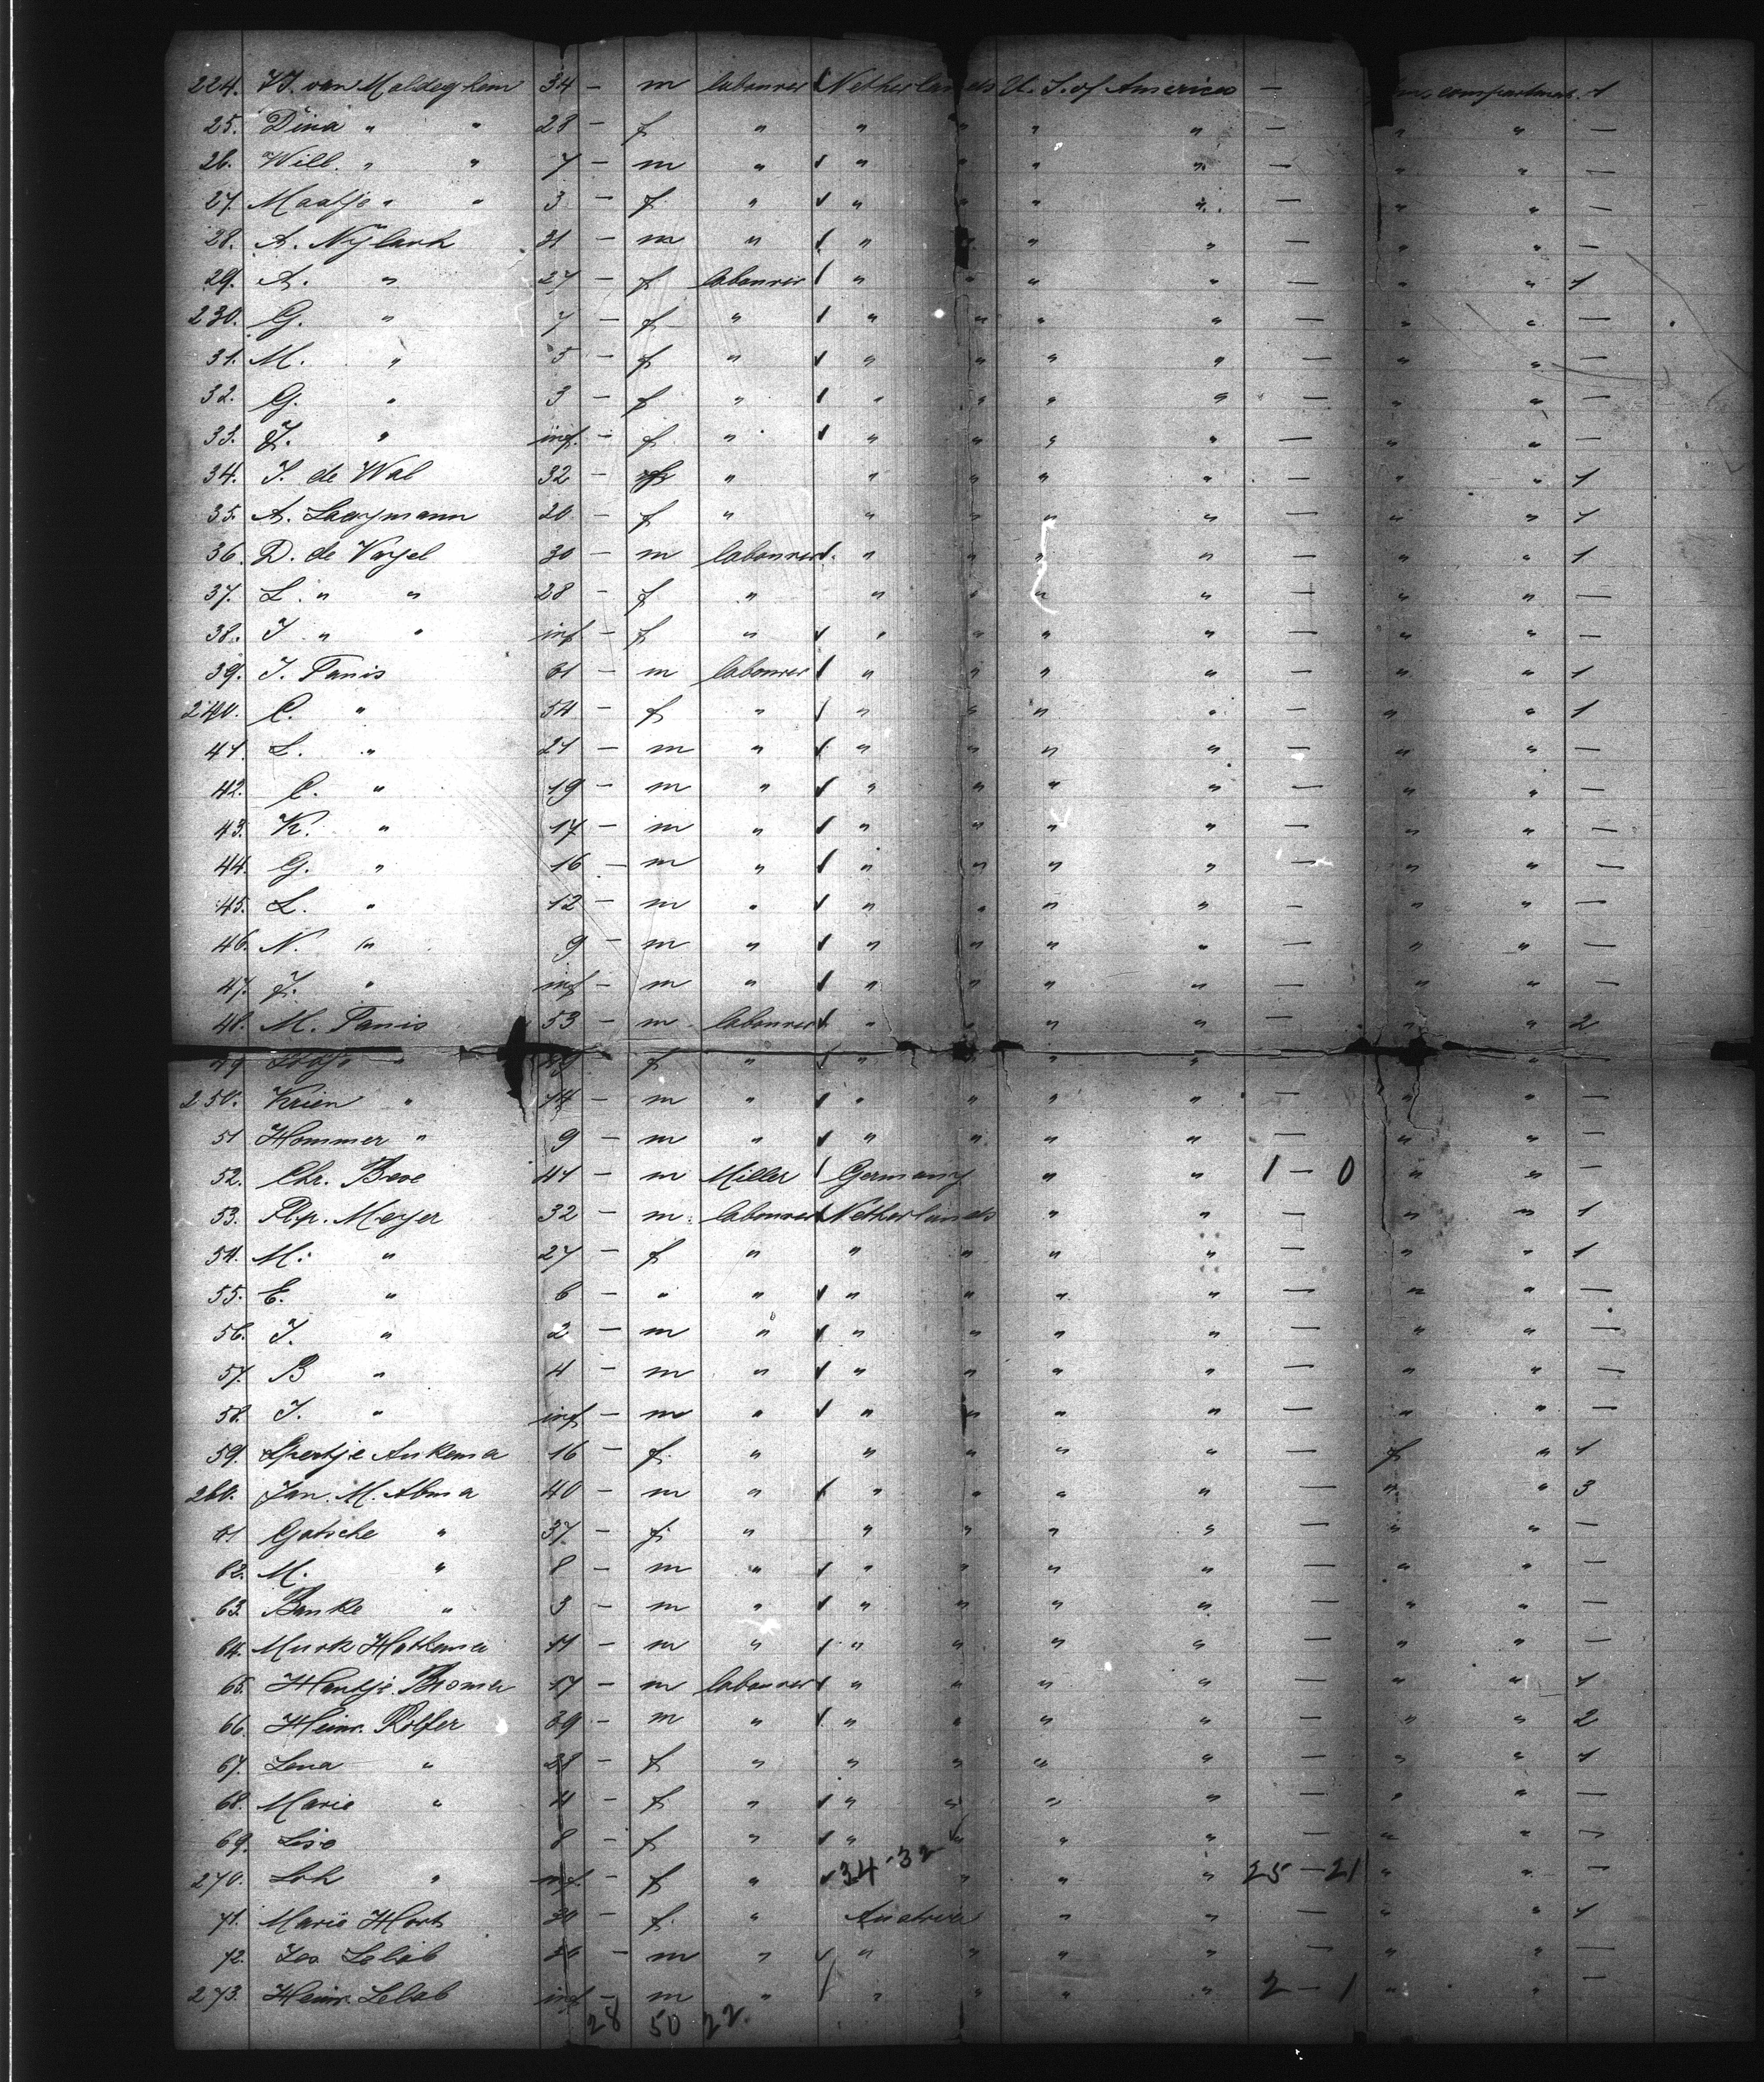 224. van Maldeghem 34 – m labourer Netherlands U. S. of America – compartment 1
25. Dina " " 28 – f " " " " " – " " —
26. Will. " " 7 – m " " " " " – " " —
27. Maatje " " 3 – f " " " " " – " " —
28. A. Nylank 31 – m " " " " " – " " —
29. A. " 27 – f labourer " " " " – " " 1
230. G. " 7 – f " " " " " – " " —
31. M. " 5 – f " " " " " – " " —
32. G. " 3 – f " " " " " – " " —
33. J. " inf. – f " " " " " – " " —
34. J. de Wal 32 – " " " " " – " " 1
35. A. 20 – f " " " " " – " " 1
36. D. de Vogel 30 – m labourer " " " " – " " 1
37. L. " " 28 – f " " " " " – " " —
38. J " " inf – f " " " " " – " " —
39. J. Tanis 61 – m labourer " " " " – " " 1
240. C. " 54 – f " " " " " – " " 1
41. L. " 21 – m " " " " " – " " —
42. C. " 19 – m " " " " " – " " —
43. K. " 17 – m " " " " " – " " —
44. G. " 16 – m " " " " " – " " —
45. L. " 12 – m " " " " " – " " —
46. N. " 9 – m " " " " " – " " —
47. J. " inf – m " " " " " – " " —
48. M. Tanis 53 – m labourer " " " " – " " 2
49 " f " " " " " – " " —
250. Krien " 14 – m " " " " " – " " —
51 Hommer " 9 – m " " " " " – " " —
52. Chr. Beve 44 – m Miller Germany " " 1 – 0 " " —
53. Flp. Meyer 32 – m. labourer Netherlands " " – " " 1
54. M. " 27 – f " " " " " – " " 1
55. E. " 6 – " " " " " " – " " —
56. J. " 2 – m " " " " " – " " —
57. B " 4 – m " " " " " – " " —
58. J. " inf – m " " " " " – " " —
59. Ankema 16 – f. " " " " " – f " 1
260. Jan. M. Abma 40 – m " " " " " – " " 3
61 Gatsche " 37 – f " " " " " – " " —
62. M. " 8 – m " " " " " – " " —
63. Banke " 3 – m " " " " " – " " —
64. Murk Hottema 11 – m " " " " " – " " —
65. Hantje Bosma 17 – m labourer " " " " – " " 1
66. Heinr. Rolfer 39 – m " " " " " – " " 2
67. Lena " 28 – f " " " " " – " " 1
68. Marie " 4 – f " " " " " – " " —
69. Lise 8 – f " " " " " – " " —
270. " inf. – f " 34-32 " " " 25 – 21 " " —
71. Marie Hort 30 – f. " Austria " " – " " 1
72. Jos. Lelab 20 – m " " " " " – " " —
273. Heinr. Lelab inf – m " " " " " 2 – 1 " " —
28 50 22.